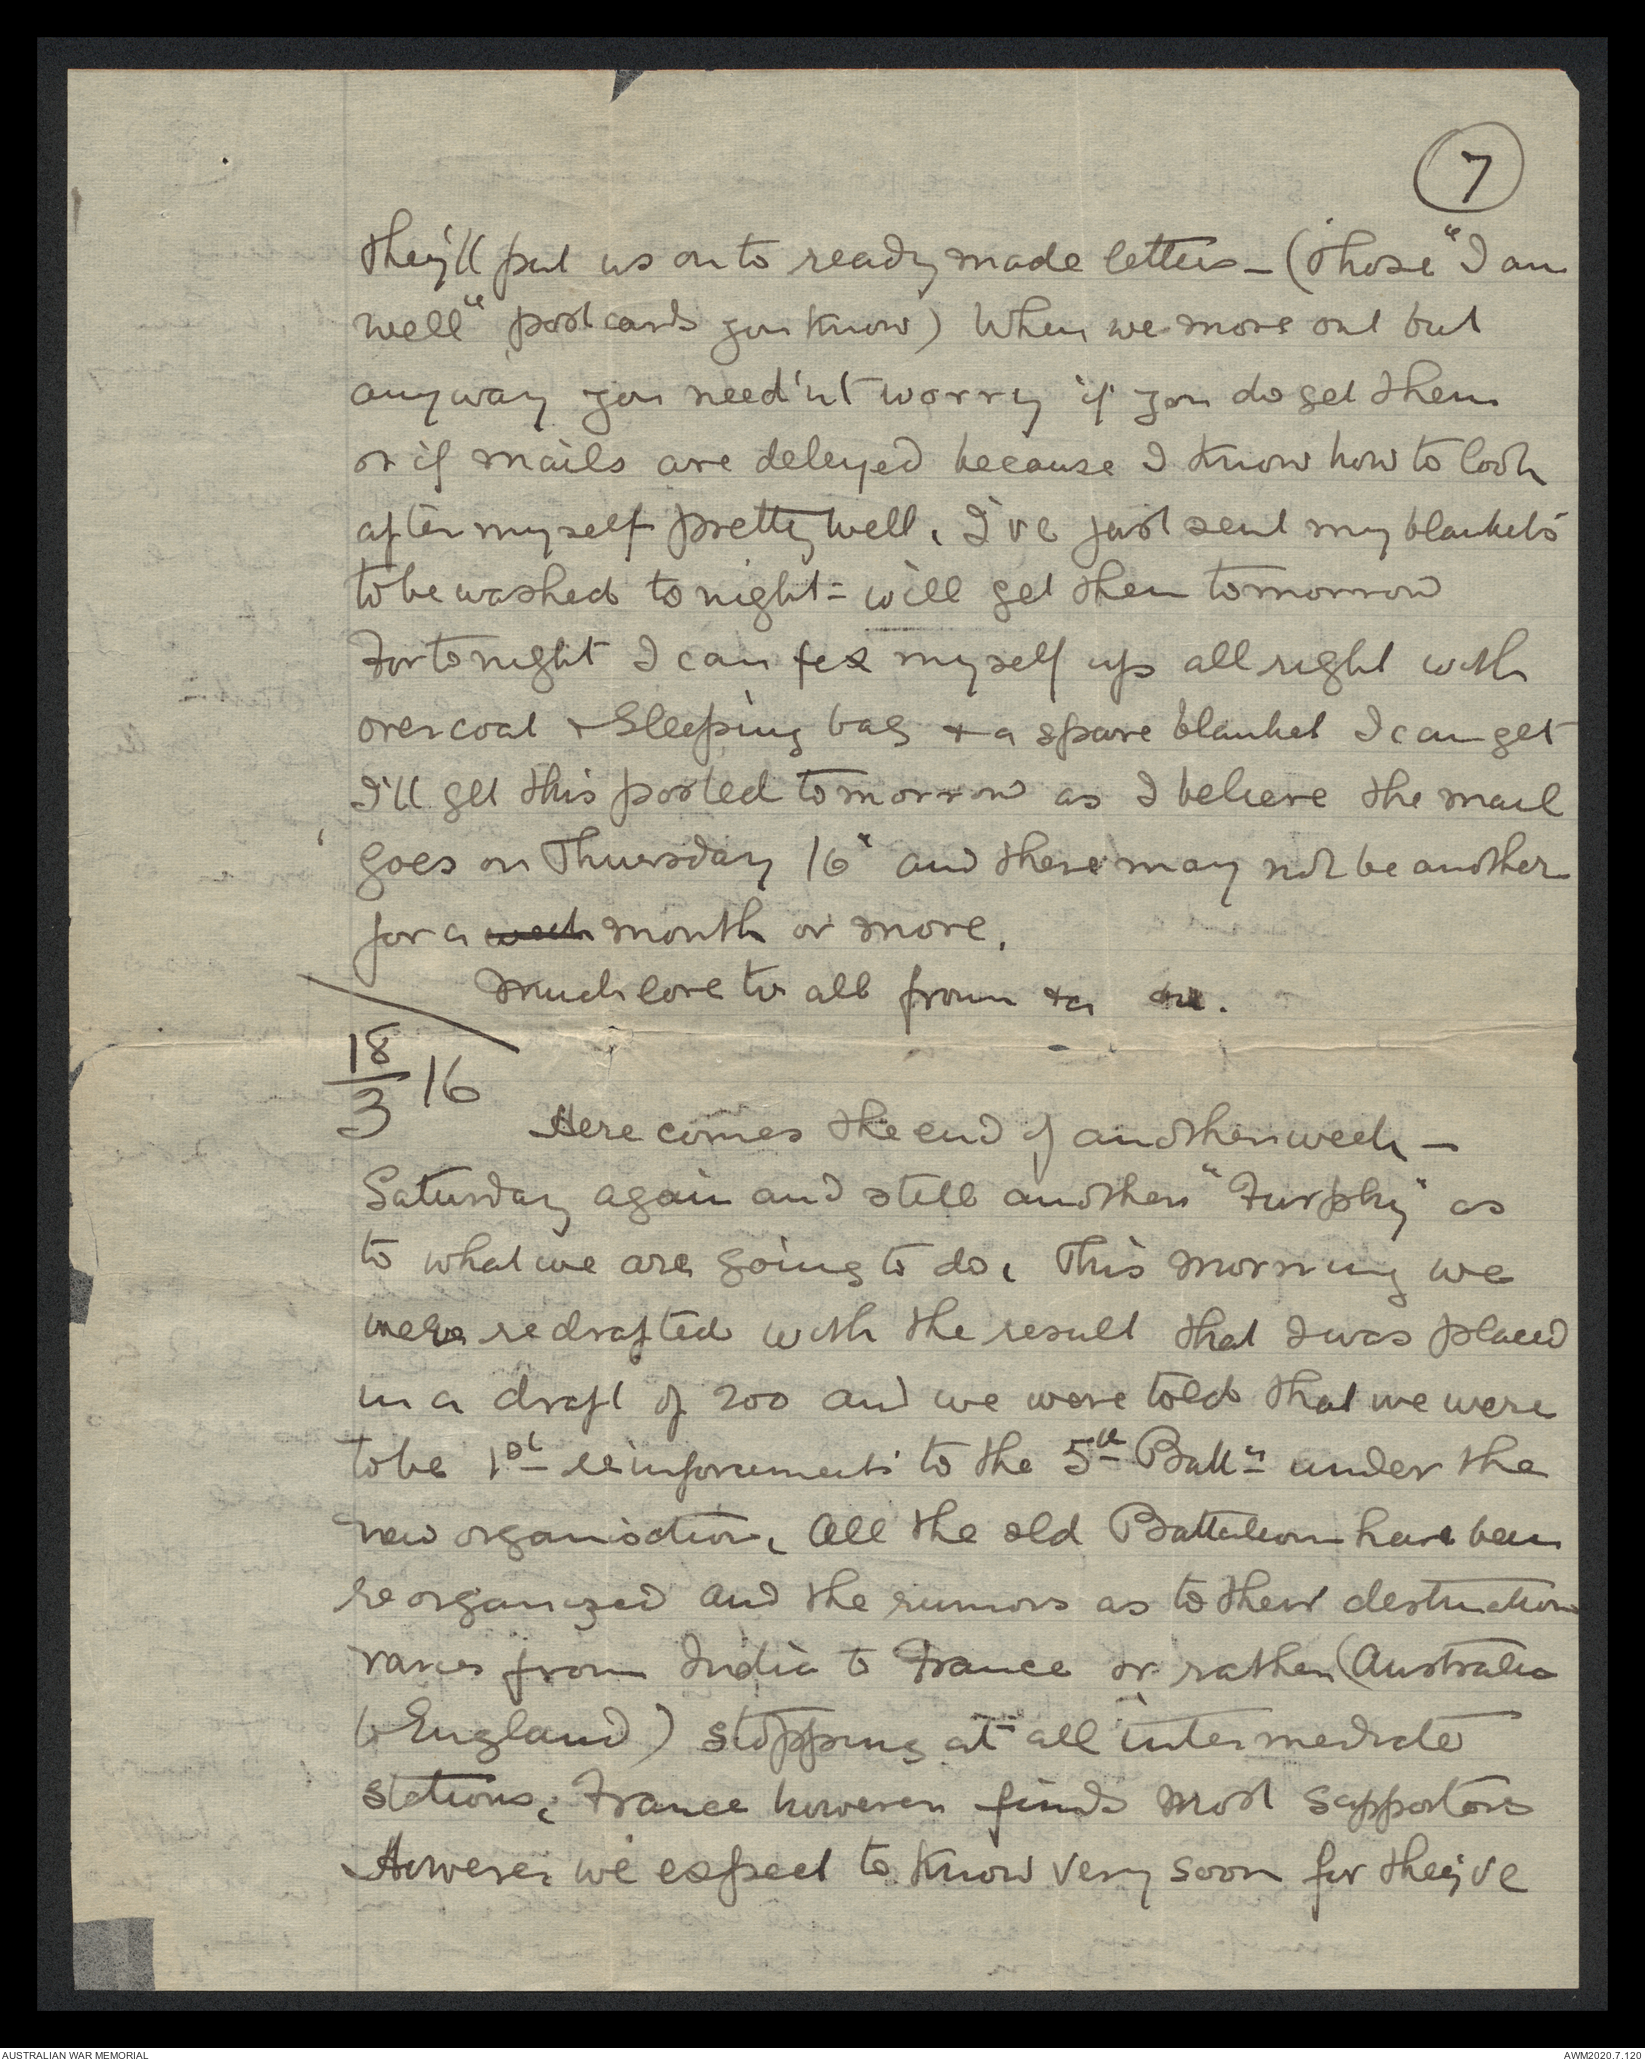 7
they'll put us on to ready made letters - (Those "I am
well" post cards you know) When we move out but
anyway you need'nt worry if you do get them
or if mails are delayed because I know how to look
after myself pretty well. I've just sent my blankets
to be washed to night - will get them tomorrow
For tonight I can fix myself up all right with
overcoat + Sleeping bag + a spare blanket I can get
I'll get this posted tomorrow as I believe the mail
goes on Thursday 16" and there may not be another
for a week month or more.
Much love to all from
18/3 16
Here comes the end of another week -
Saturday again and still another "Furphy" as
to what we are going to do. This morning we
were redrafted with the result that I was placed
in a draft of 200 and we were told that we were
to be 1st reinforcements to the 5th Battn under the
new organisation. All the old Battalions have been
reorganized and the rumors as to their destination
varies from India to France or rather (Australia
to England) stopping at all intermediate
stations. France however finds most supporters
However we expect to know very soon for they've
AUSTRALIAN WAR MEMORIAL
AWM2020.7.120